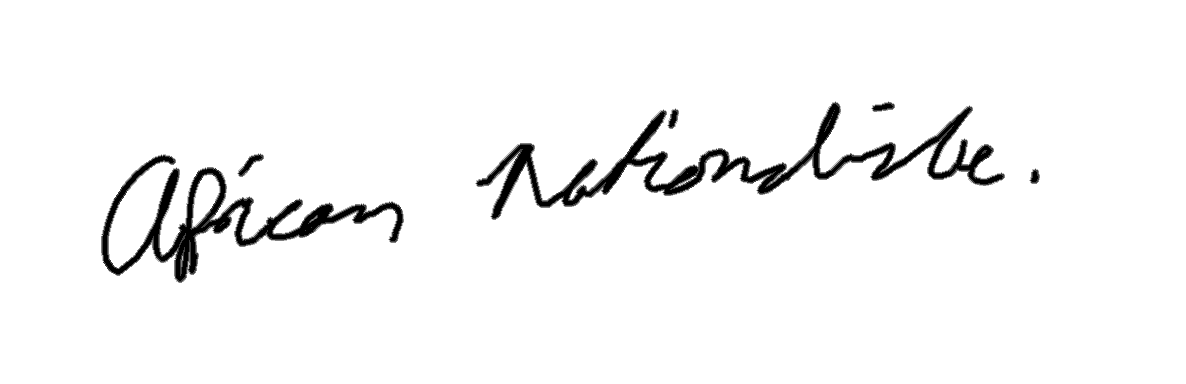 African Nationalists.